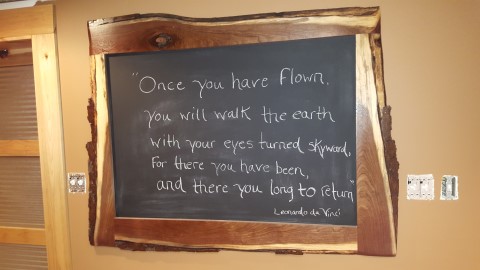 "Once you have flown.
you will walk the earth
with your eyes turned skyward,
For there you have been,
and there you long to return"
Leonardo da Vinci